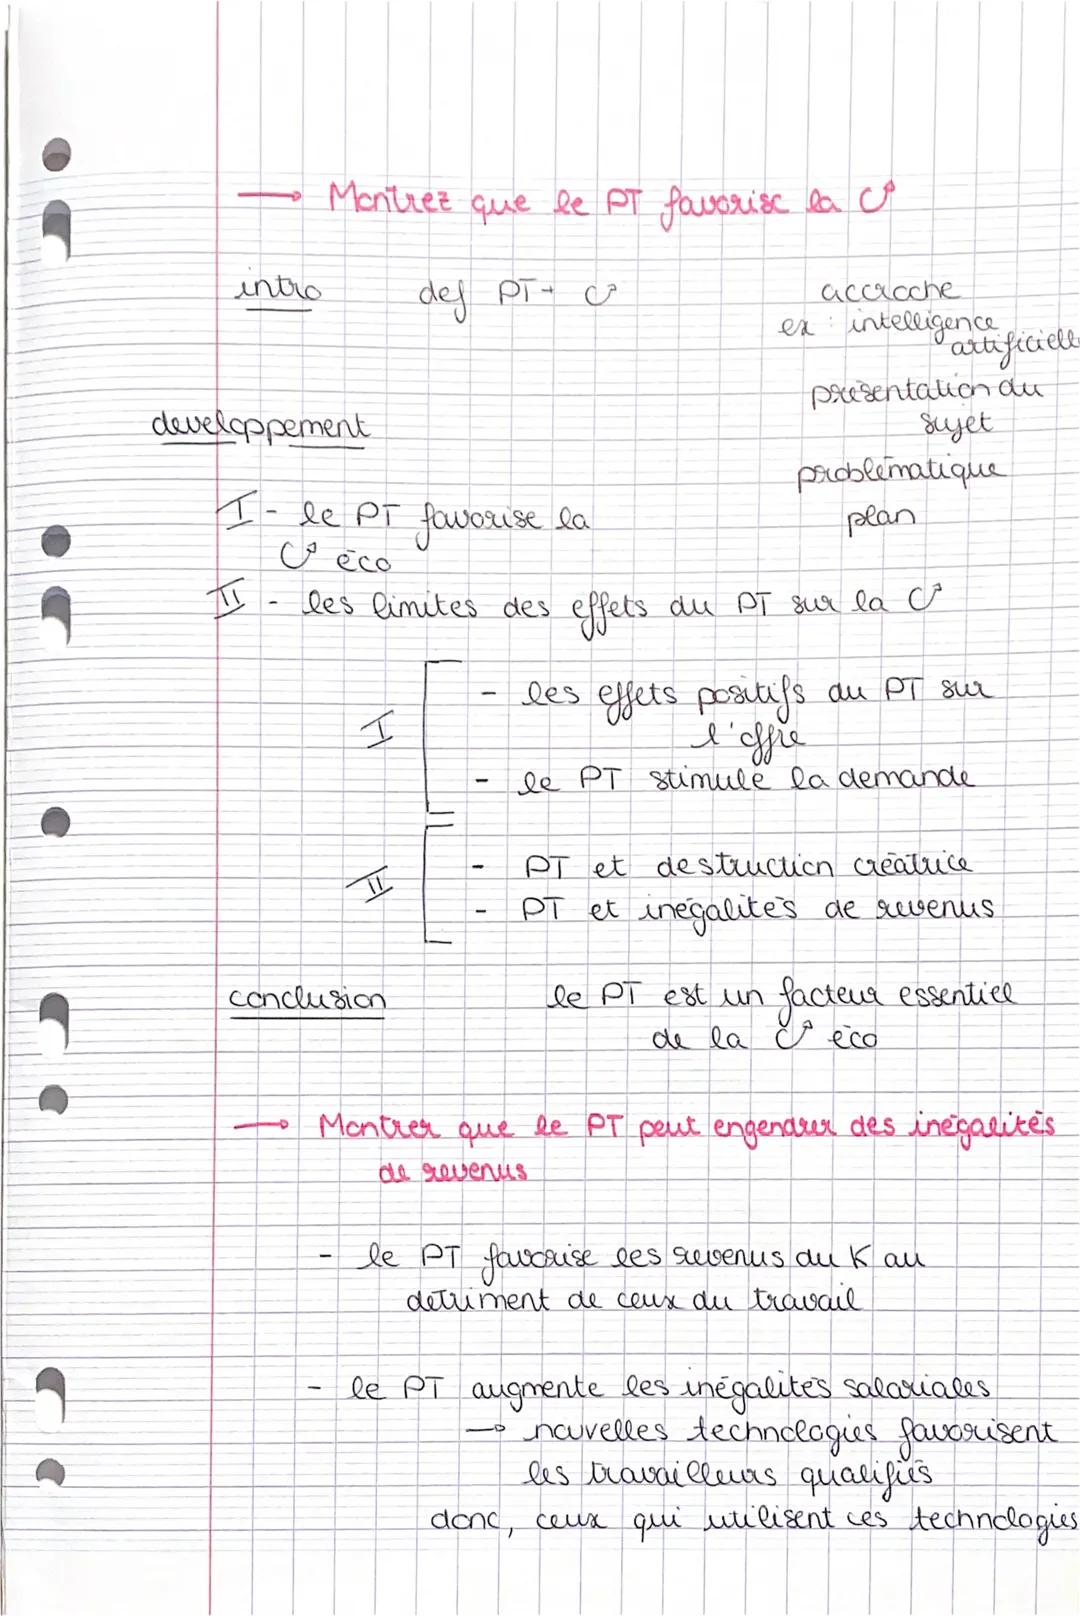 → Montrez que le PT favorise la C↗
intro def PT + C↗ accroche
ex : intelligence
artificielle
présentation du
sujet
developpement
problématique
I - le PT favorise la plan
C↗ éco
II - les limites des effets du PT sur la C↗
- les effets positifs du PT sur
I l'offre
- le PT stimule la demande
- PT et destruction créatrice
II
- PT et inégalités de revenus
conclusion le PT est un facteur essentiel
de la C↗ éco
→ Montrer que le PT peut engendrer des inégalités
de revenus
- le PT favorise les revenus du K au
detriment de ceux du travail
- le PT augmente les inégalités salariales
→ nouvelles technologies favorisent
les travailleurs qualifiés
donc, ceux qui utilisent ces technologies